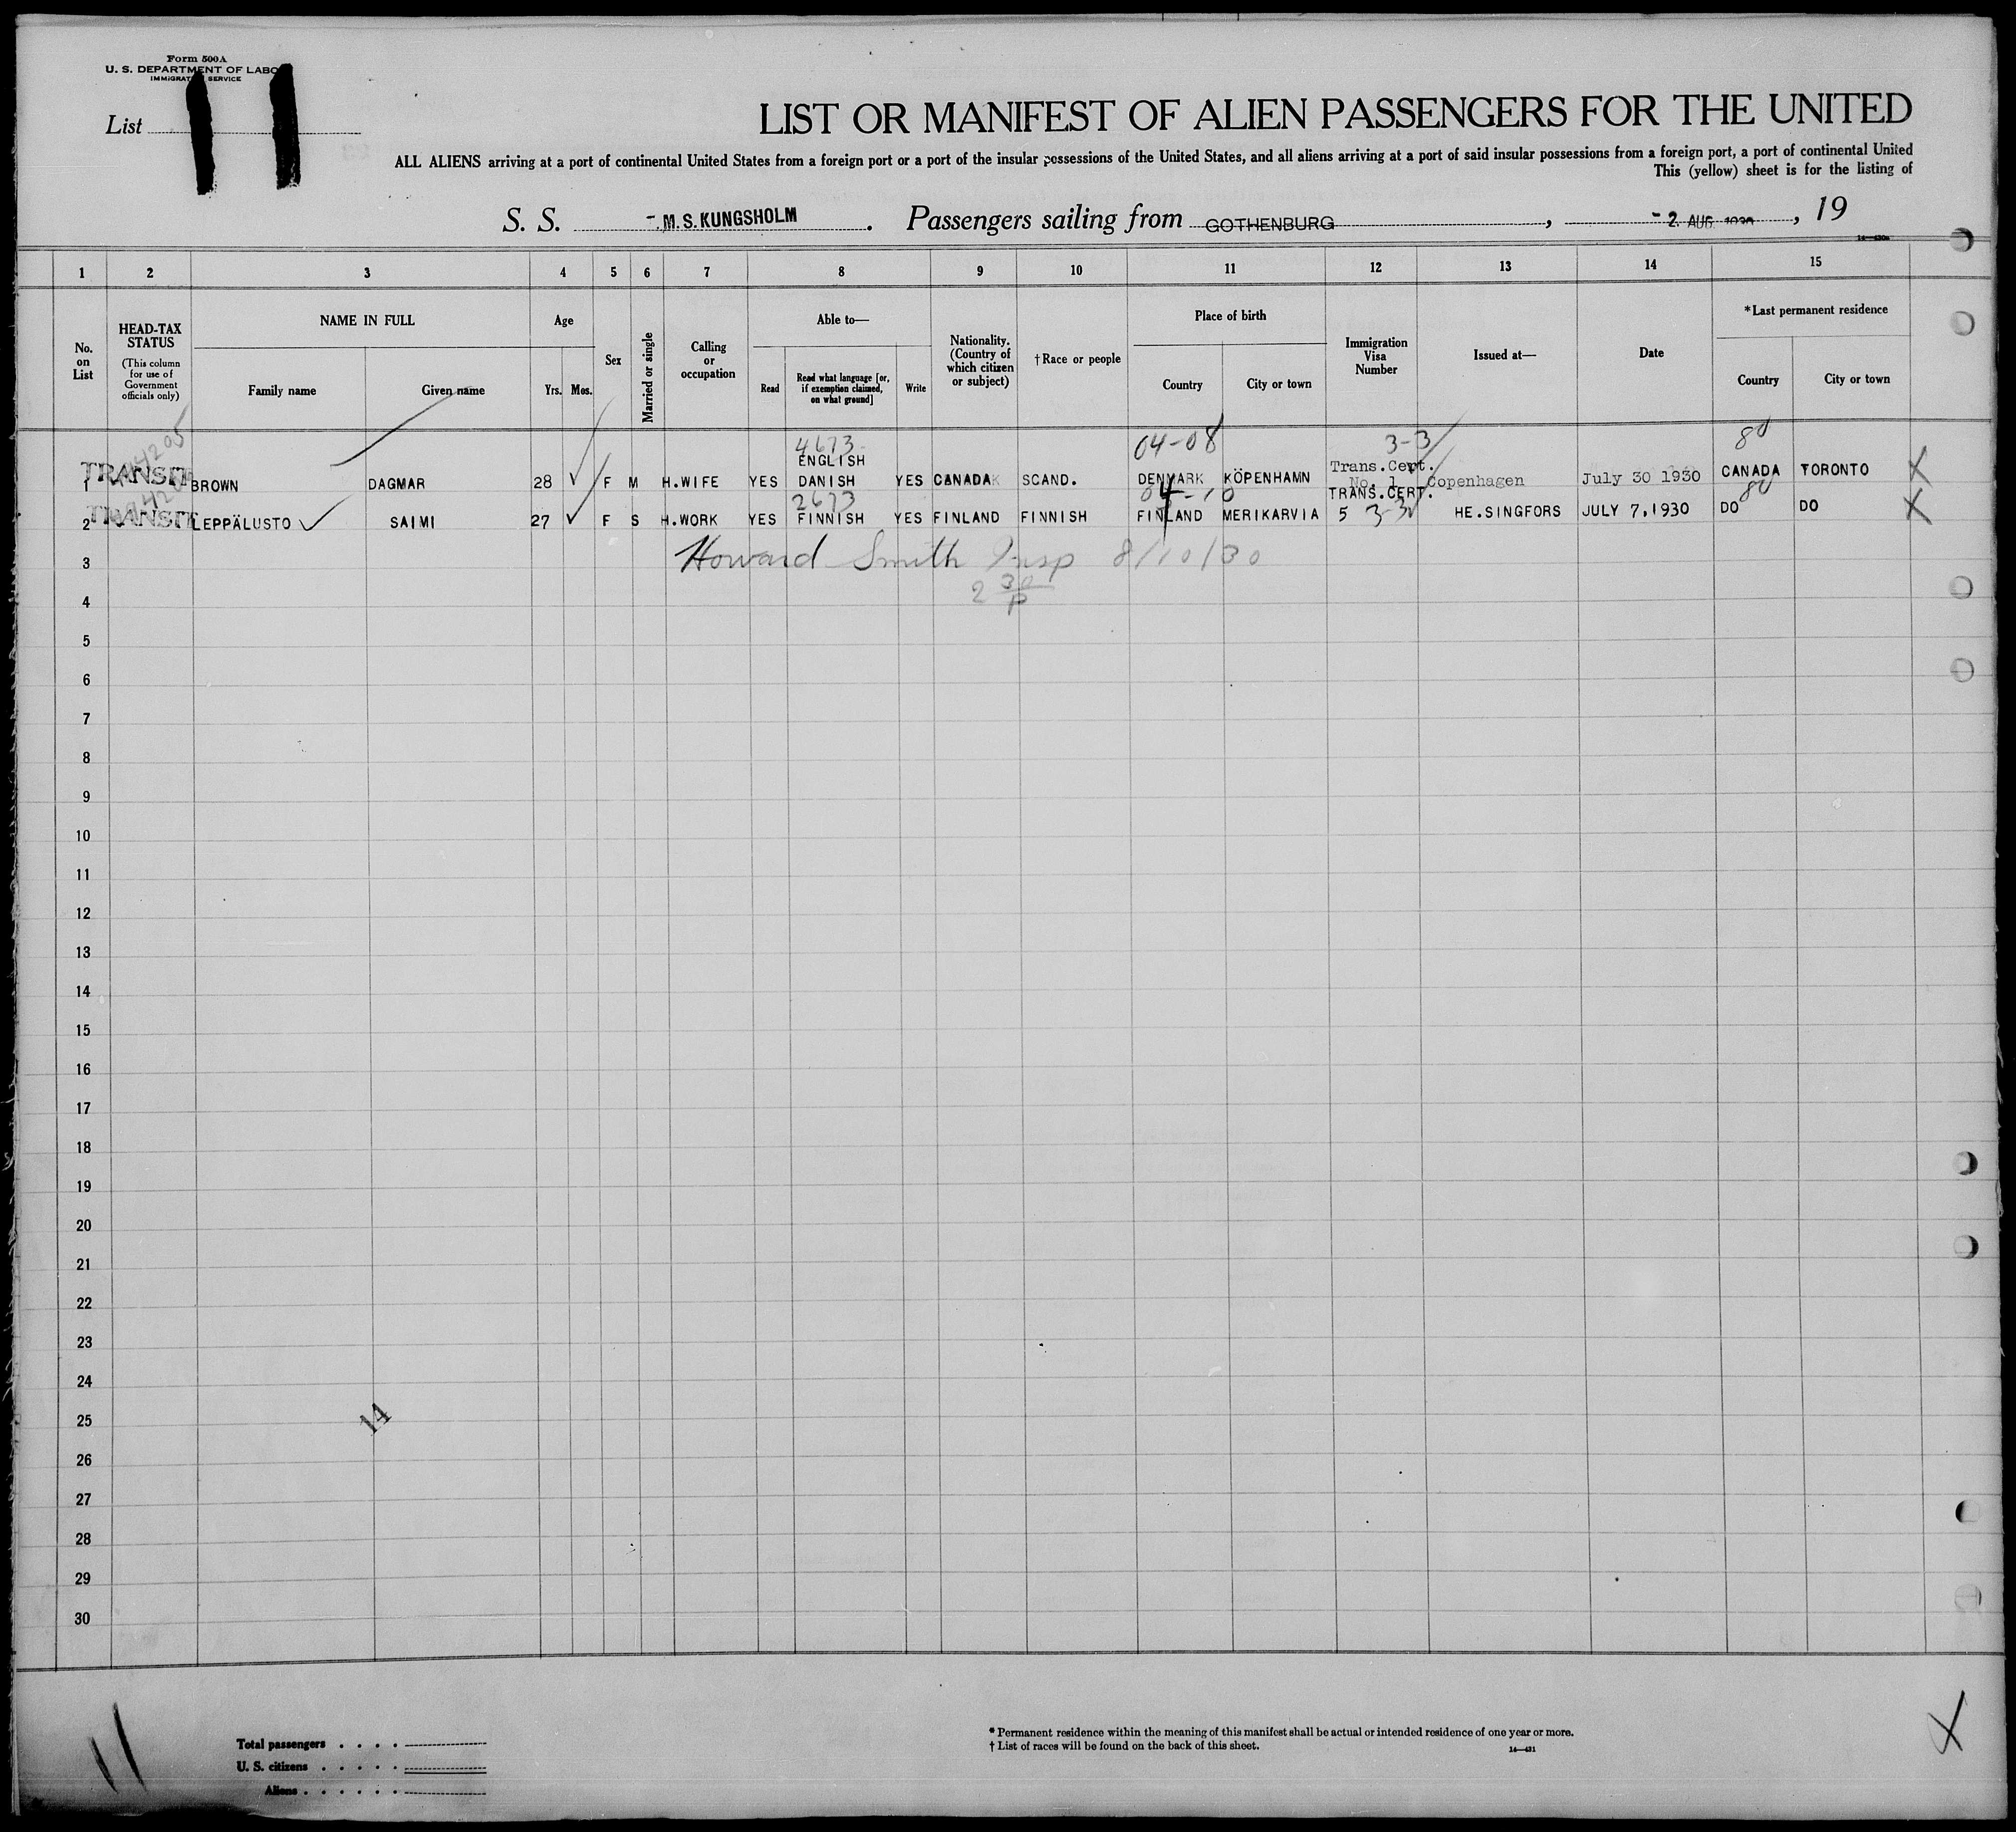 Form 500A
U. S. DEPARTMENT OF LABO
IMMIGRAT SERVICE
List 11
LIST OR MANIFEST OF ALIEN PASSENGERS FOR THE UNITED
ALL ALIENS arriving at a port of continental United States from a foreign port or a port of the insular possessions of the United States, and all aliens arriving at a port of said insular possessions from a foreign port, a port of continental United
This (yellow) sheet is for the listing of
S. S. M.S.KUNGSHOLM . Passengers sailing from GOTHENBURG , -2 AUG 1930 , 19
1 2 3 4 5 6 7 8 9 10 11 12 13 14 15
No. on List
HEAD-TAX STATUS
(This column for use of Government officials only)
NAME IN FULL
Family name Given name
Age
Yrs. Mos.
Sex
Married or single
Calling or occupation
Able to—
Read
Read what language [or, if exemption claimed, on what ground]
Write
Nationality. (Country of which citizen or subject)
†Race or people
Place of birth
Country City or town
Immigration Visa Number
Issued at—
Date
*Last permanent residence
Country City or town
4673 04-08 3-3 80
ENGLISH Trans.Cert.
1 TRANSIT BROWN DAGMAR 28 F M H.WIFE YES DANISH YES CANADA SCAND. DENMARK KÖPENHAMN No. 1 Copenhagen July 30 1930 CANADA TORONTO X
2673 04-10 TRANS.CERT. 80
2 TRANSIT LEPPÄLUSTO SAIMI 27 F S H.WORK YES FINNISH YES FINLAND FINNISH FINLAND MERIKARVIA 5 3-3 HE.SINGFORS JULY 7,1930 DO DO X
3 Howard Smith Insp 8/10/30
4 2 30 P
5
6
7
8
9
10
11
12
13
14
15
16
17
18
19
20
21
22
23
24
25
14
26
27
28
29
30
11
Total passengers
U. S. citizens
Aliens
* Permanent residence within the meaning of this manifest shall be actual or intended residence of one year or more.
† List of races will be found on the back of this sheet.
14—431
X